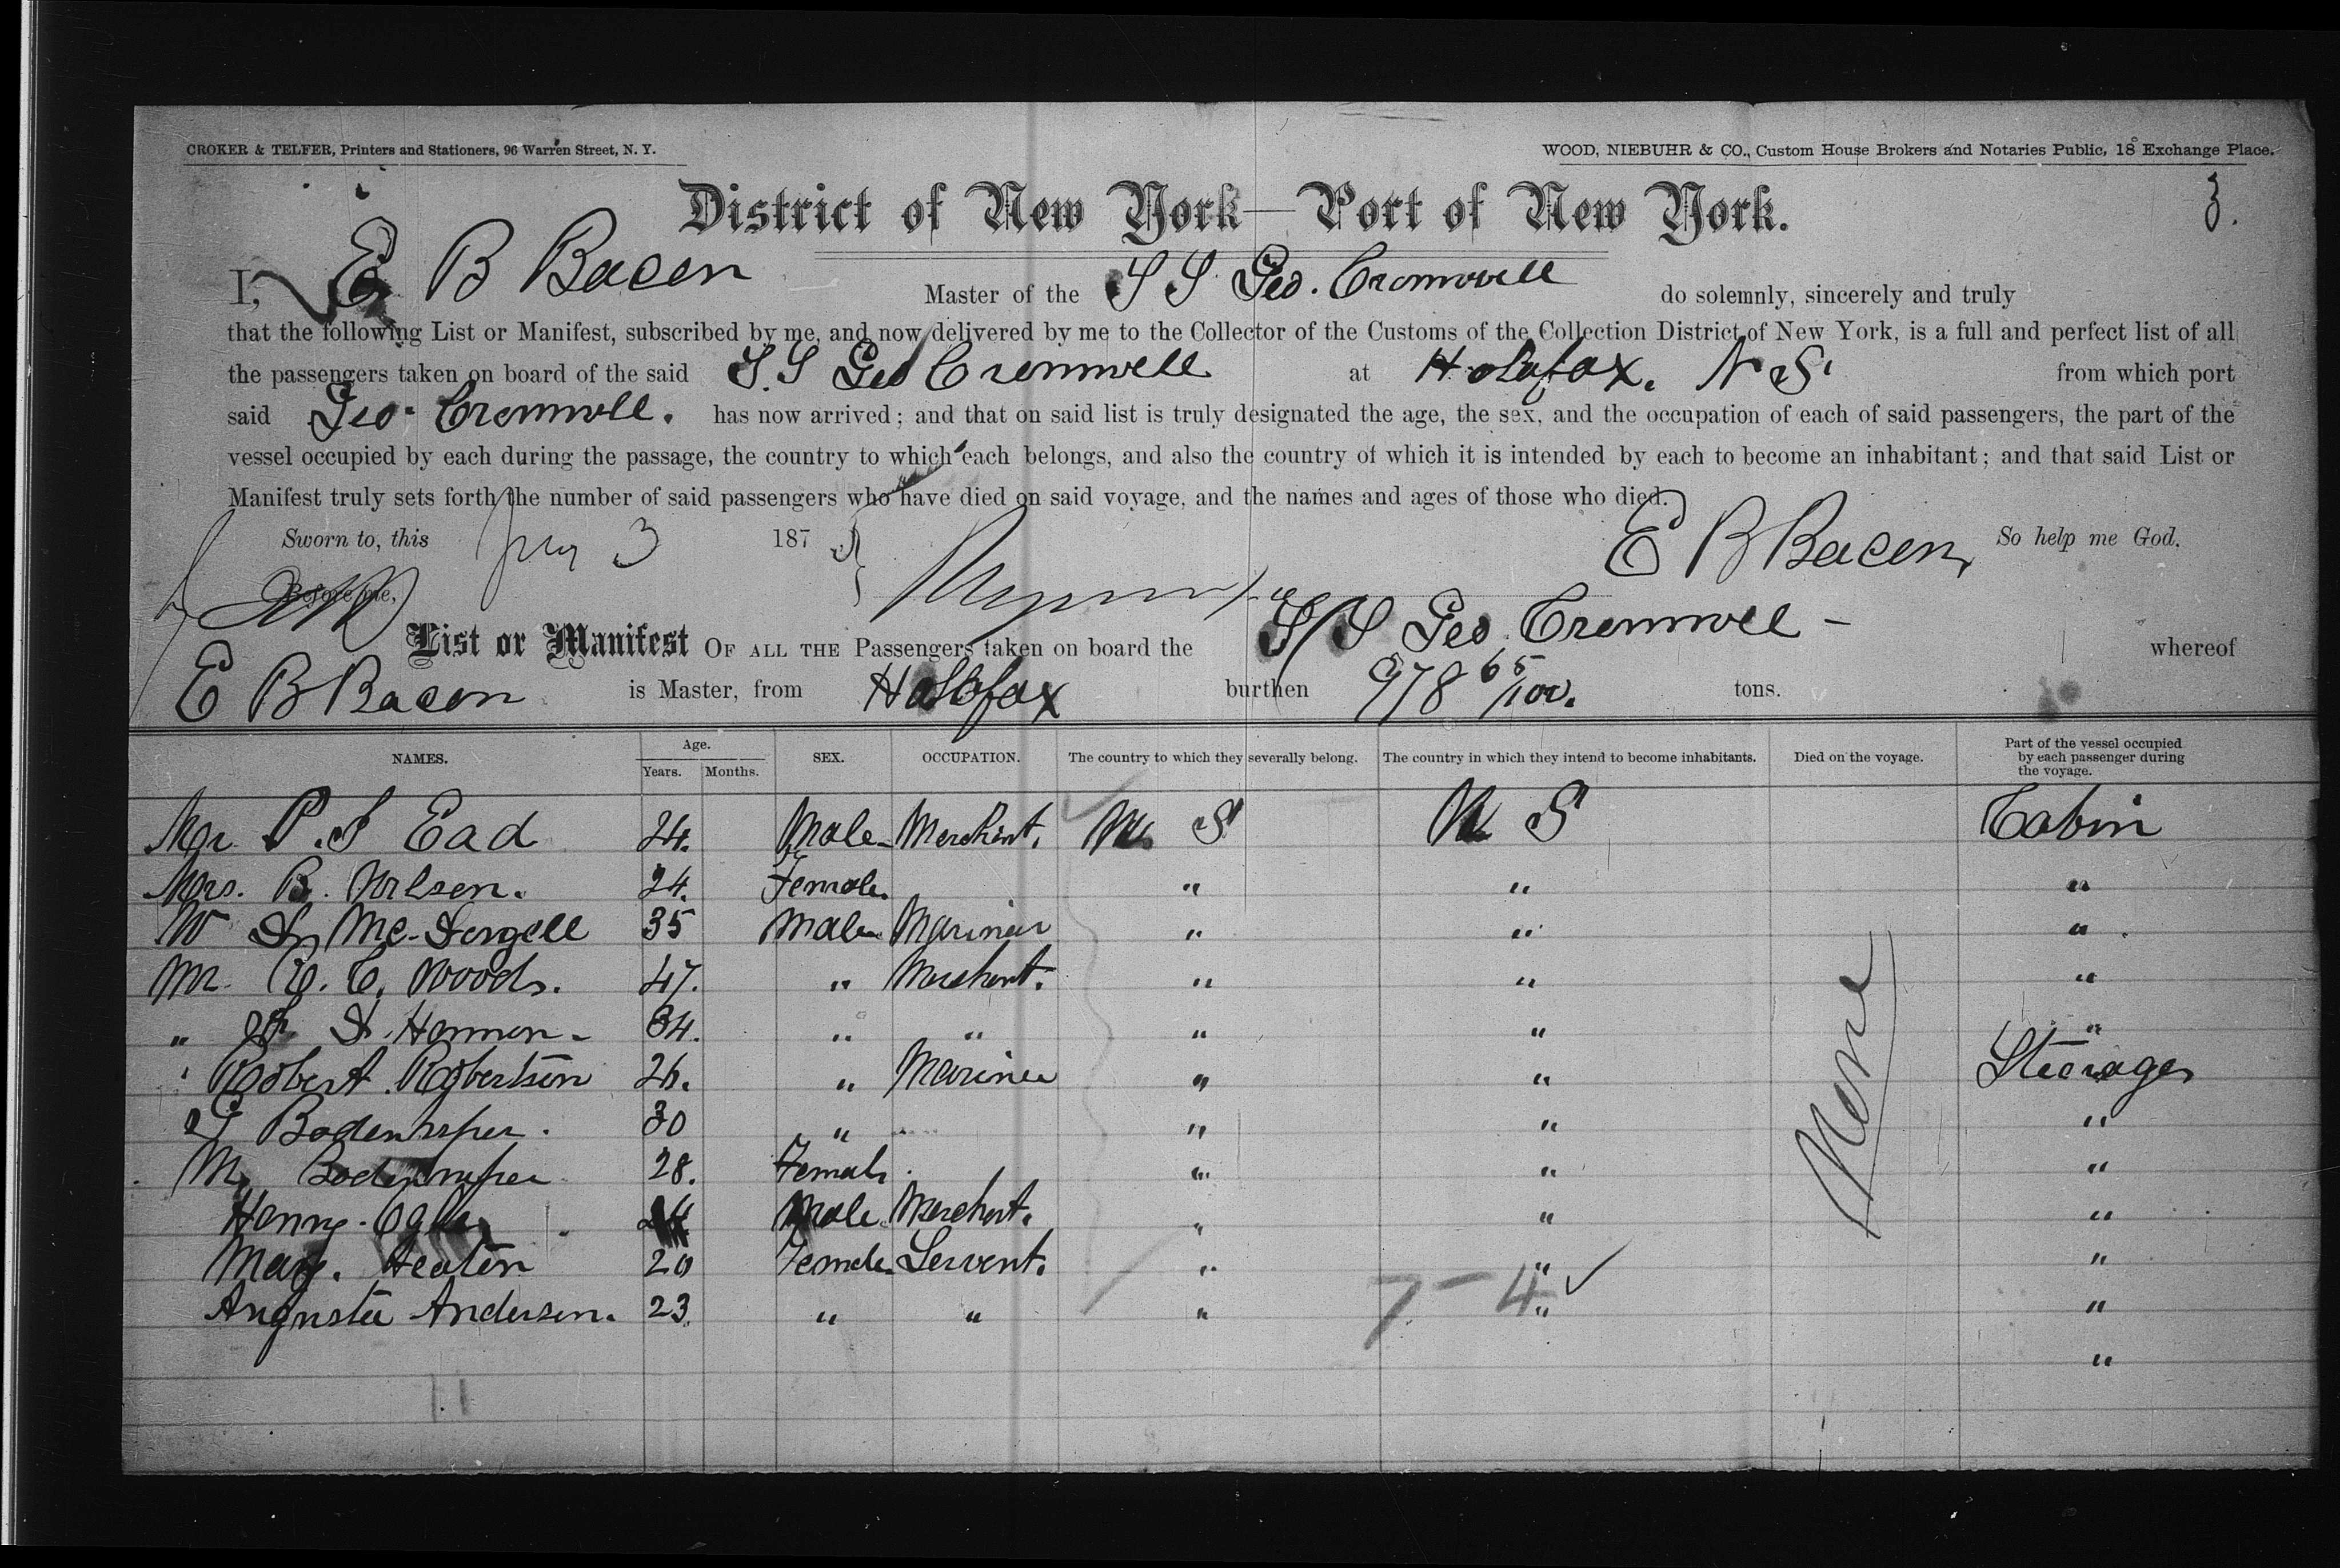 CROKER & TELFER, Printers and Stationers, 96 Warren Street, N. Y.
WOOD, NIEBUHR & CO., Custom House Brokers and Notaries Public, 18 Exchange Place.
3.
District of New York—Port of New York.
I, E B Bacon Master of the S S Geo. Cromwell do solemnly, sincerely and truly
that the following List or Manifest, subscribed by me, and now delivered by me to the Collector of the Customs of the Collection District of New York, is a full and perfect list of all
the passengers taken on board of the said S.S Geo Cromwell at Halifax. N S. from which port
said Geo. Cromwell. has now arrived; and that on said list is truly designated the age, the sex, and the occupation of each of said passengers, the part of the
vessel occupied by each during the passage, the country to which each belongs, and also the country of which it is intended by each to become an inhabitant; and that said List or
Manifest truly sets forth the number of said passengers who have died on said voyage, and the names and ages of those who died.
Sworn to, this 3 187 E B Bacon So help me God.
Before me,
List or Manifest OF ALL THE Passengers taken on board the S/S Geo. Cromwell — whereof
E B Bacon is Master, from Halifax burthen 978 65/100. tons.
NAMES. Age. Years. Months. SEX. OCCUPATION. The country to which they severally belong. The country in which they intend to become inhabitants. Died on the voyage. Part of the vessel occupied by each passenger during the voyage.
Mr P. S Ead 24. Male Merchant. U S U S Cabin
Mrs. B. Wilson. 24. Female " " "
35 Male Mariner " " "
Mr. C. Woods. 47. " Merchant. " " "
" Harmon 34. " " " " "
" Robert Robertson 26. " Mariner " " Steerage
30 " " " " "
M. 28. Female " " "
Henry Male Merchant. " " "
Mary. Heaton 20 Female Servent. " " "
Augusta Anderson. 23 " " " " "
"
None
7 - 4
11